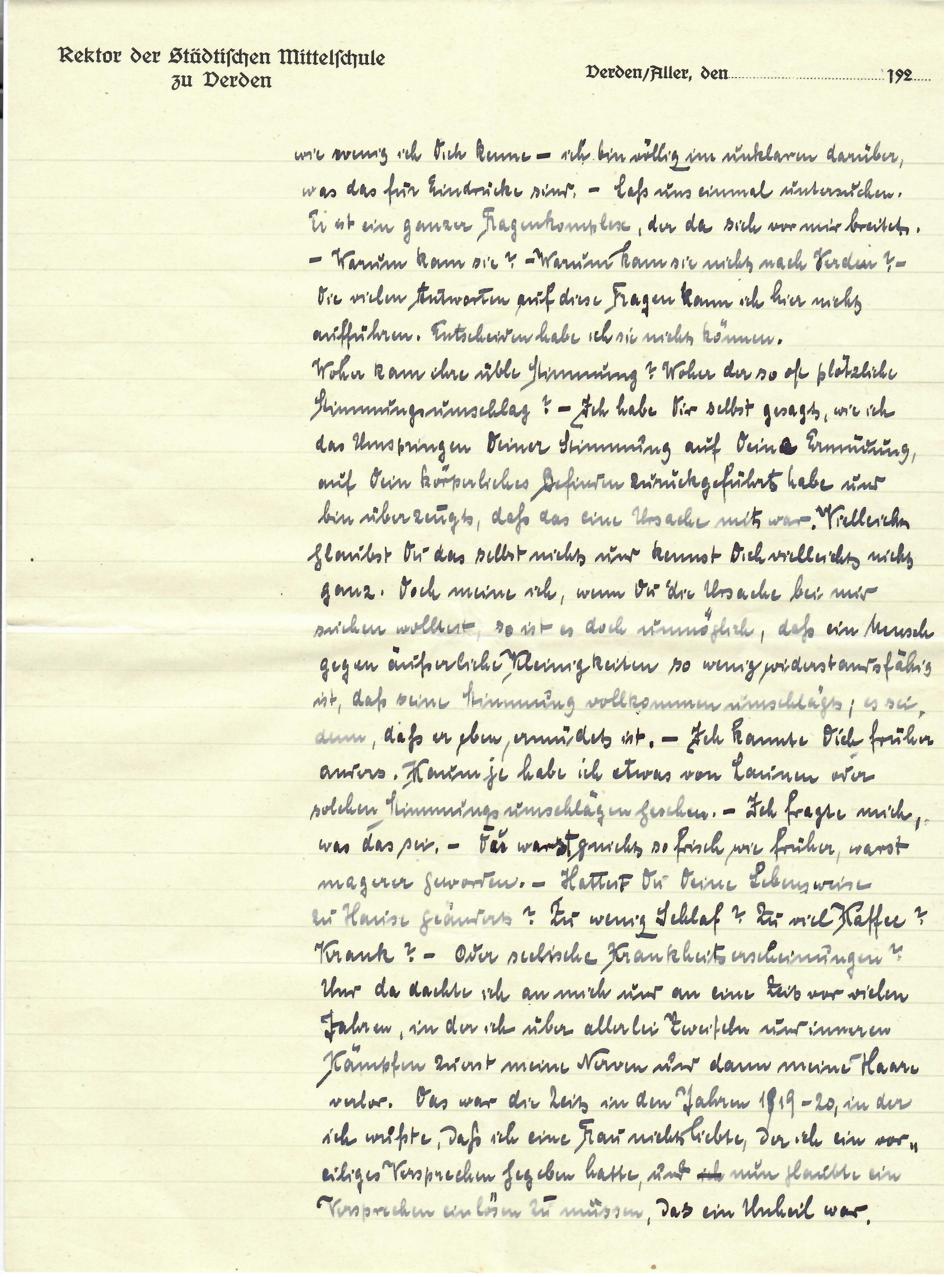 Rektor der Städtischen Mittelschule
zu Verden
Verden/Aller, den 192
wie wenig ich Dich kenne – ich bin völlig im unklaren darüber,
was das für Eindrücke sind. – Laß uns einmal untersuchen.
Es ist ein ganzer Fragenkomplex, der da sich vor mir breitet.
– Warum kam sie? – Warum kam sie nicht nach Verden? –
Die vielen Antworten auf diese Fragen kann ich hier nicht
aufführen. Entscheiden habe ich sie nicht können.
Woher kam ihre üble Stimmung? Woher der so oft plötzliche
Stimmungsumschlag? – Ich habe Dir selbst gesagt, wie ich
das Umspringen Deiner Stimmung auf Deine Ermüdung,
auf Dein körperliches Befinden zurückgeführt habe und
bin überzeugt, daß das eine Ursache mit war. Vielleicht
glaubst Du das selbst nicht und kennst Dich vielleicht nicht
ganz. Doch meine ich, wenn Du die Ursache bei mir
suchen wolltest, so ist es doch unmöglich, daß ein Mensch
gegen äußerliche Kleinigkeiten so wenig widerstandsfähig
ist, daß seine Stimmung vollkommen umschlägt; es sei
denn, daß er eben ermüdet ist. – Ich kannte Dich früher
anders. Kaum je habe ich etwas von Launen oder
solchen Stimmungsumschlägen gesehen. – Ich fragte mich,
was das sei. – Du warst nicht so frisch wie früher, warst
magerer geworden. – Hattest Du Deine Lebensweise
zu Hause geändert? Zu wenig Schlaf? Zu viel Kaffee?
Krank? – Oder seelische Krankheitserscheinungen?
Und da dachte ich an mich und an eine Zeit vor vielen
Jahren, in der ich über allerlei Zweifeln und inneren
Kämpfen zuerst meine Nerven und dann meine Haare
verlor. Das war die Zeit in den Jahren 1919–20, in der
ich wußte, daß ich eine Frau nicht liebte, der ich ein vor„
eiliges Versprechen gegeben hatte, und ich nun glaubte ein
Versprechen einlösen zu müssen, das ein Unheil war.